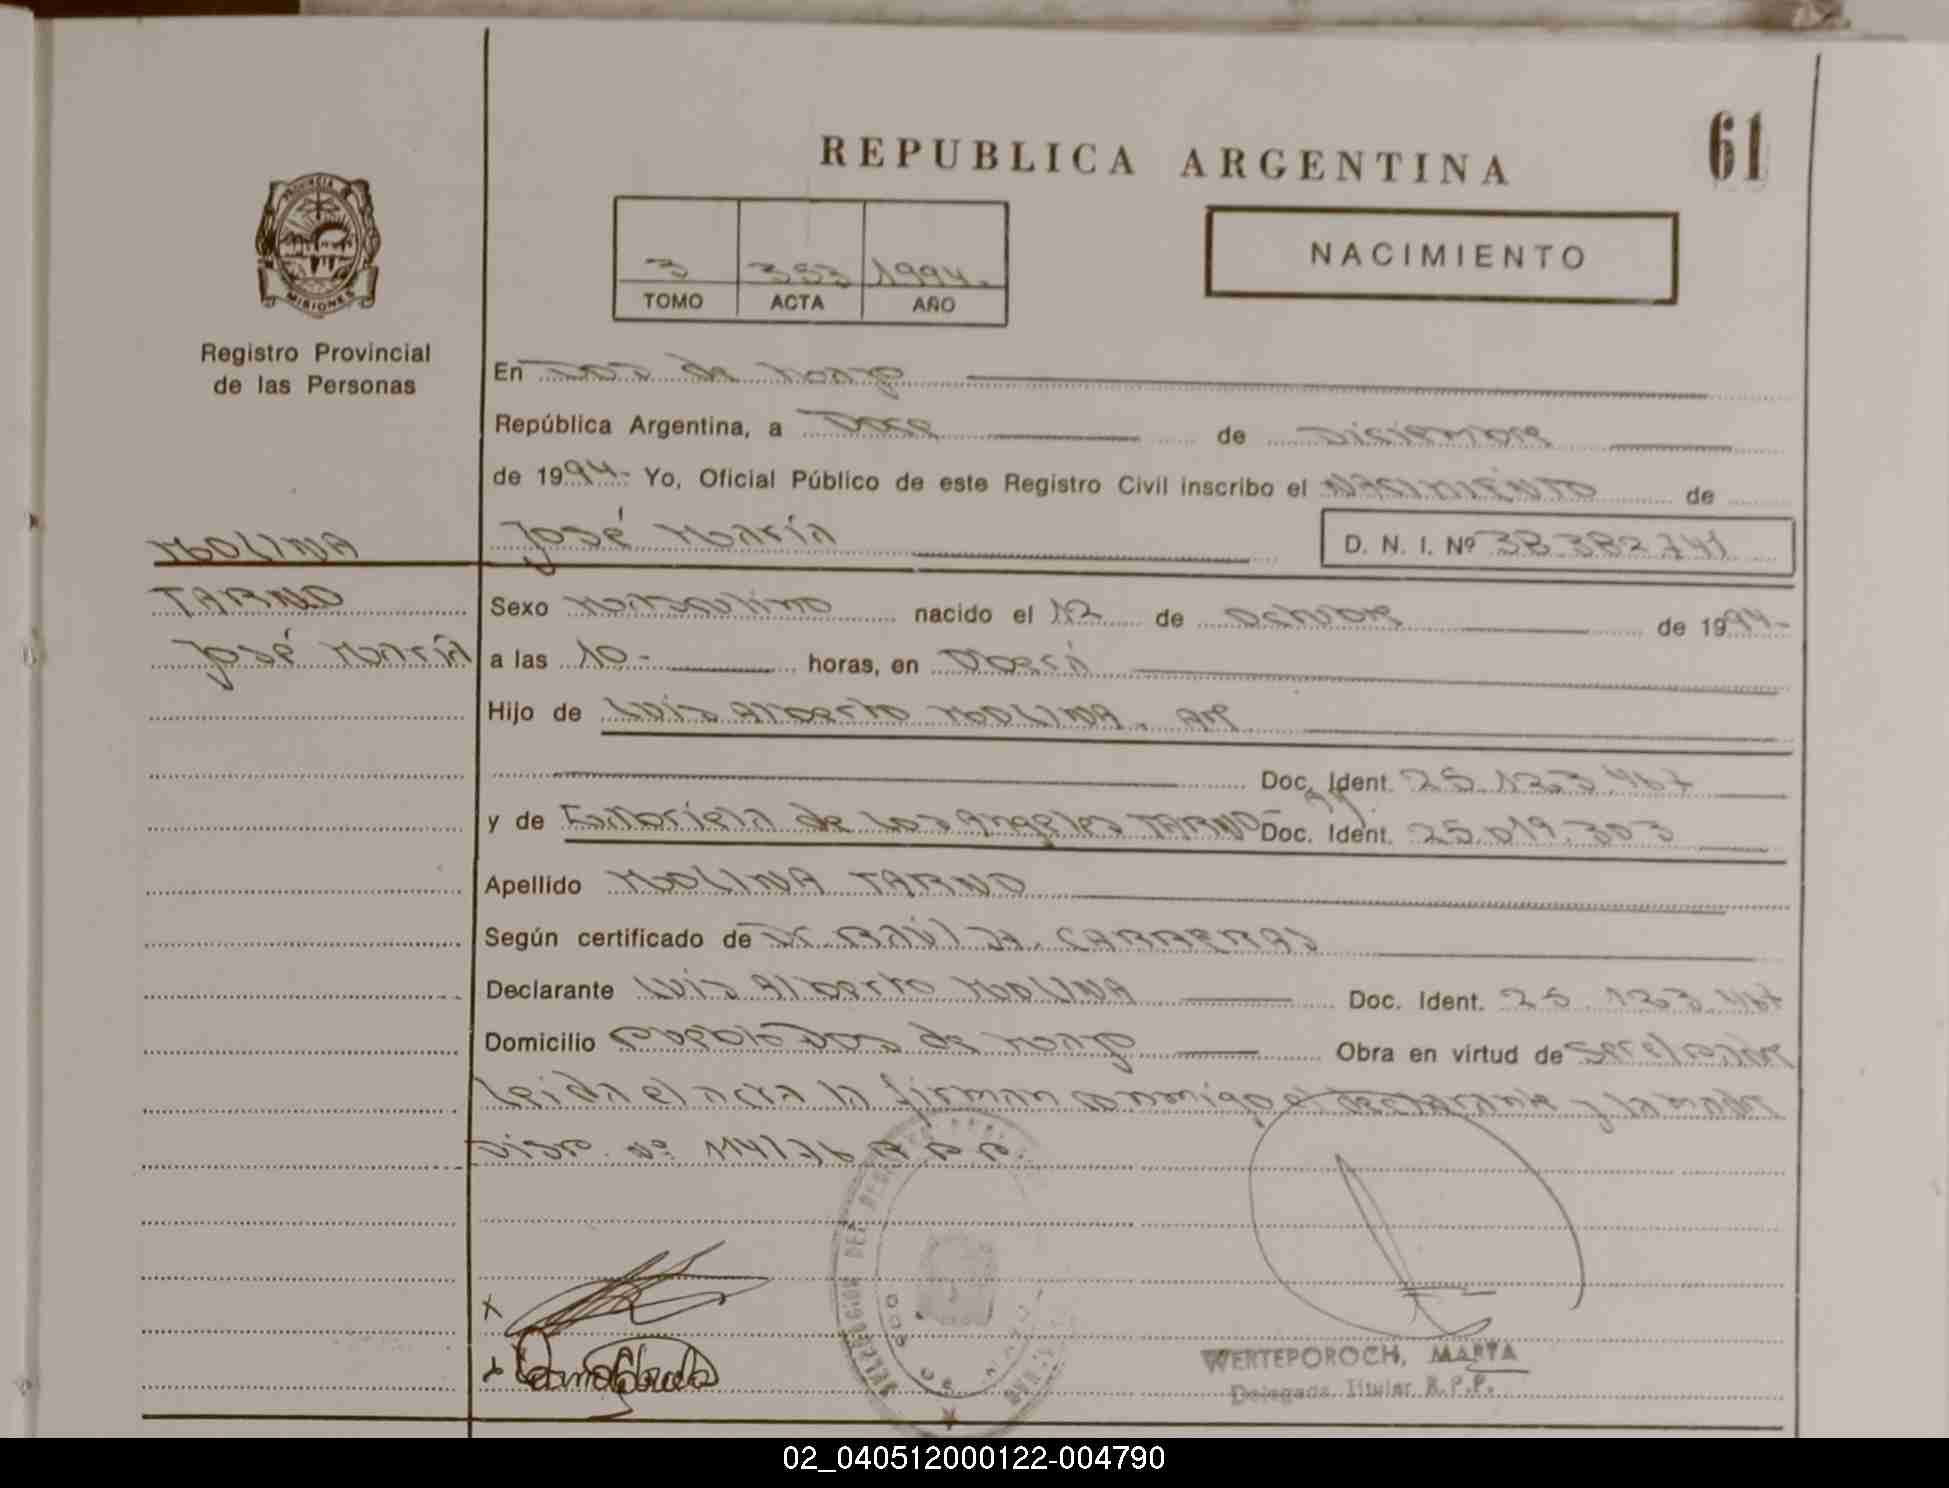 61
REPUBLICA ARGENTINA
NACIMIENTO
PROVINCIA DE
MISIONES
Registro Provincial
de las Personas
3 353 1994.
TOMO ACTA AÑO
En Dos de Mayo
República Argentina, a Doce de Diciembre
de 1994- Yo, Oficial Público de este Registro Civil inscribo el NACIMIENTO de
MOLINA José María D. N. I. Nº 38.382.741
TARNO Sexo Masculino nacido el 12 de Octubre de 1994-
José María a las 10- horas, en Oberá
Hijo de Luis Alberto MOLINA, Arg
Doc. Ident. 25.133.467
y de de Los Angeles TARNO- Arg. Doc. Ident. 25.019.303
Apellido MOLINA TARNO
Según certificado de Dr. RAUL CARRERAS
Declarante Luis Alberto MOLINA Doc. Ident. 25.133.467
Domicilio Pueblo Dos de Mayo Obra en virtud de ser el padre
Leida el acta la firman conmigo el declarante y la madre
Disp. Nº 114/76 R.P.P.
X
WERTEPOROCH, MARTA
Delegada Titular R.P.P.
02_040512000122-004790